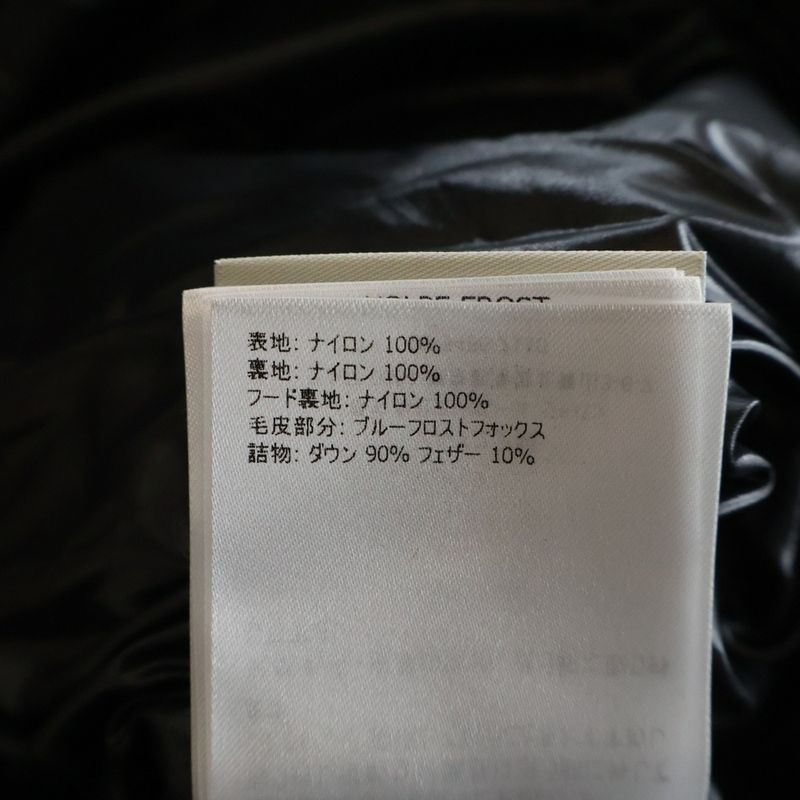 表地: ナイロン 100%
裏地: ナイロン 100%
フード裏地: ナイロン 100%
毛皮部分: ブルーフロストフォックス
詰物: ダウン 90% フェザー 10%